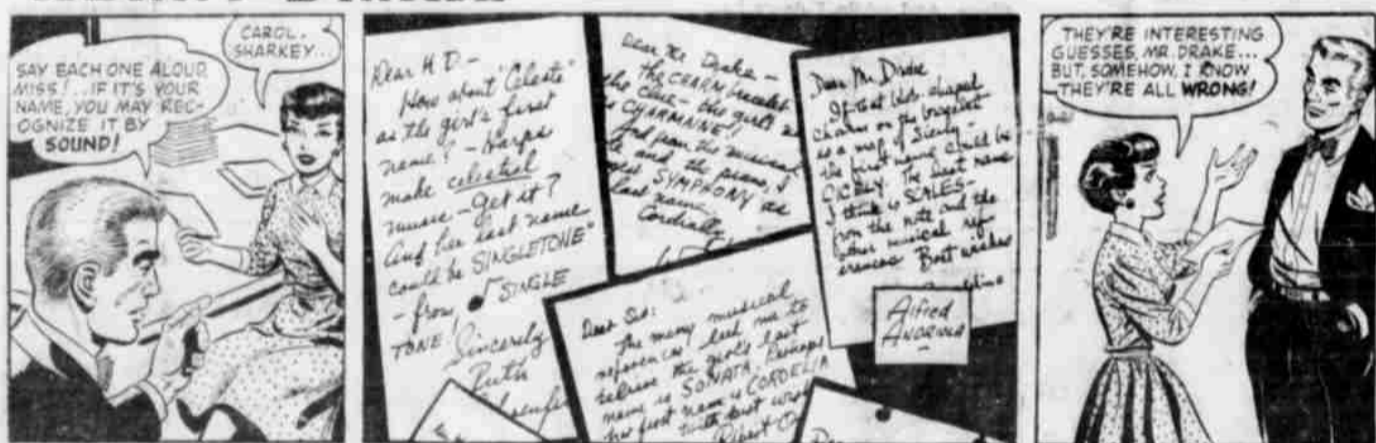 SAY EACH ONE ALOUD,
MISS!...IF IT'S YOUR
NAME, YOU MAY REC-
OGNIZE IT BY
SOUND!
CAROL.
SHARKEY...
Dear H D.-
How about "Celeste"
as the girl's first
name? - Harps
make celestial
music - get it?
And her last name
could be SINGLETONE"
- from, ♪ SINGLE
TONE
Sincerely
Ruth
Dear Mr. Drake -
the CHARM bracelet
the clue - the girl's
CHARMINNE!!
and from the musical
and the piano, I
SYMPHONY as
last name
Cordially
Dear Mr. Drake
If that blob shaped
charm on the bracelet
is a map of Sicily -
the first name could be
CICELY. The last name
I think is SCALES-
from the note and the
other musical ref-
erences Best wishes
Alfred
ANDRIOLA
Dear Sir:
The many musical
references lead me to
believe the girl's last
name is SONATA. Perhaps
her first name is CORDELIA
with best
Robert
THEY'RE INTERESTING
GUESSES, MR. DRAKE...
BUT, SOMEHOW, I KNOW
THEY'RE ALL WRONG!